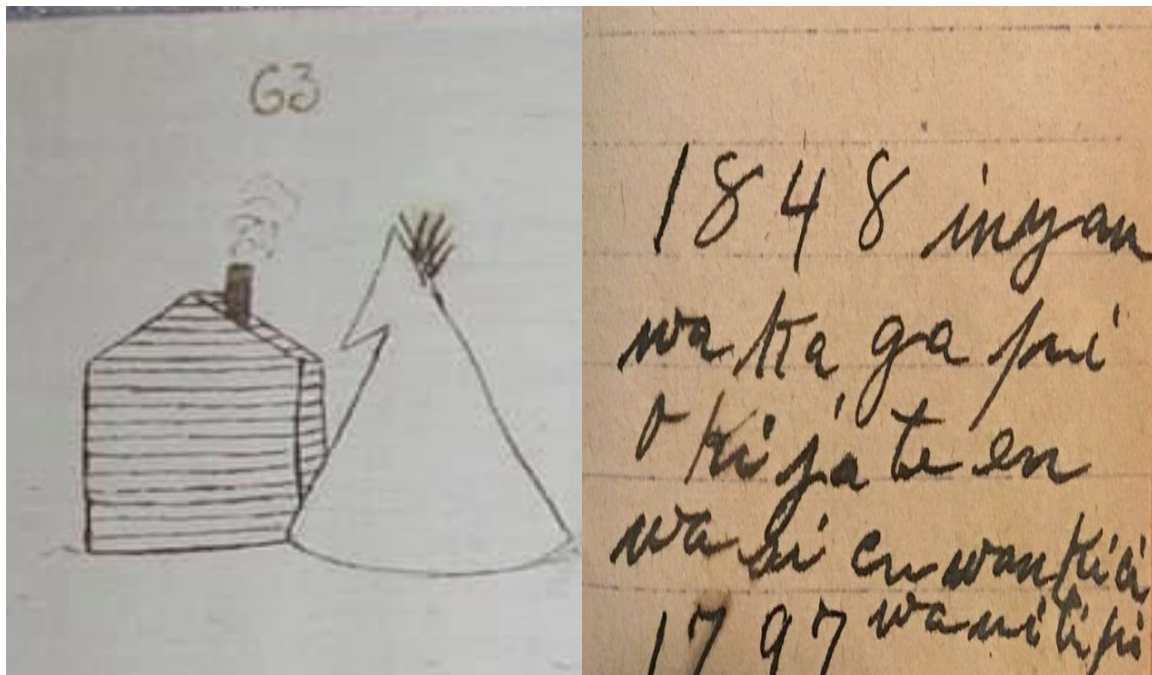 63
1848 inyan
wakagapi
okijate en
wasicu wan kici
waniti pi
1797